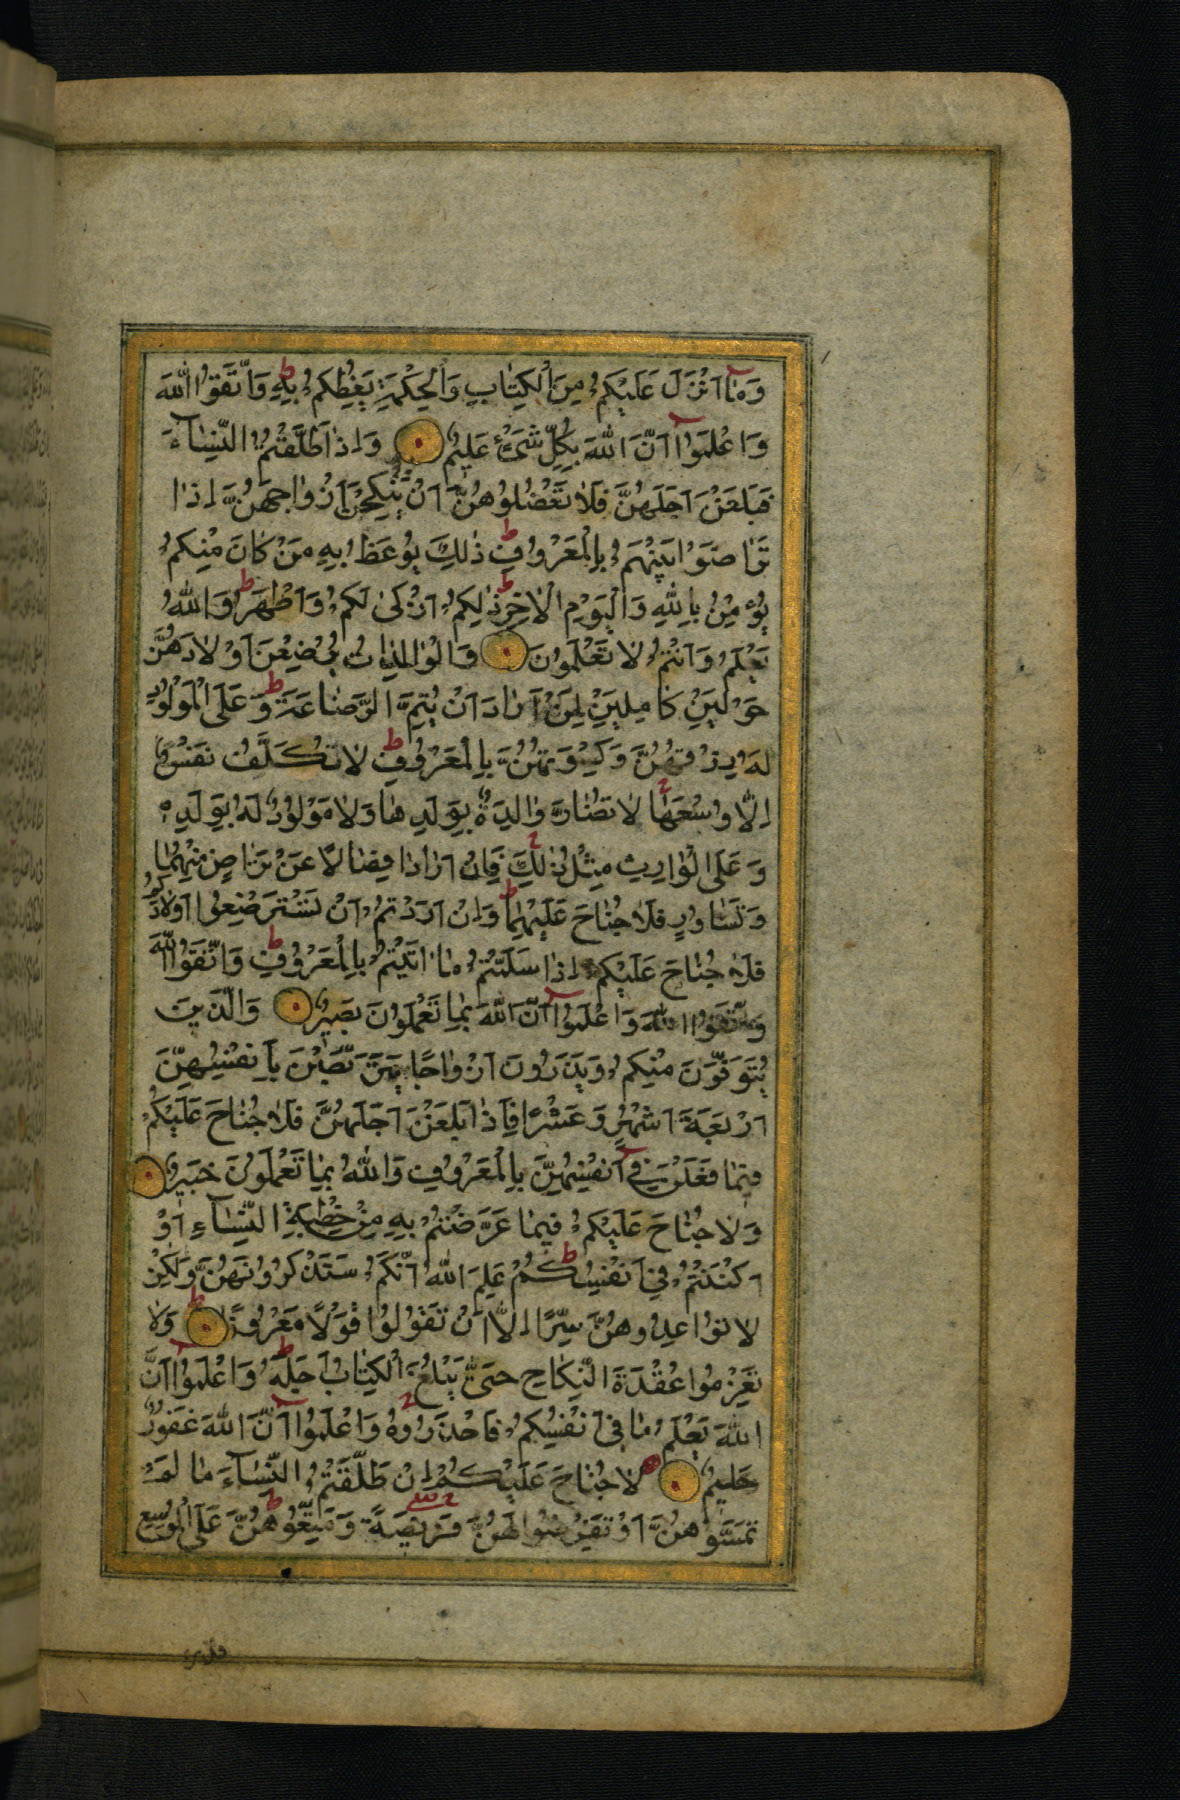 وَمَآ اَنْزَلَ عَلَيْكُمْ مِنَ الْكِتَابِ وَالْحِكْمَةِ يَعِظُكُمْ بِهِ ط وَاتَّقُوا اللّٰهَ
وَاعْلَمُوٓا اَنَّ اللّٰهَ بِكُلِّ شَئٍْ عَلِيمٌ وَاِذَا طَلَّقْتُمُ النِّسَآءَ
فَبَلَغْنَ اَجَلَهُنَّ فَلَا تَعْضُلُوهُنَّ اَنْ يَنْكِحْنَ اَزْوَاجَهُنَّ اِذَا
تَرَاضَوْا بَيْنَهُمْ بِالْمَعْرُوفِ ط ذٰلِكَ يُوعَظُ بِهِ مَنْ كَانَ مِنْكُمْ
يُؤْمِنُ بِاللّٰهِ وَالْيَوْمِ الْاٰخِرِ ط ذٰلِكُمْ اَزْكٰى لَكُمْ وَاَطْهَرُ ط وَاللّٰهُ
يَعْلَمُ وَاَنْتُمْ لَا تَعْلَمُونَ وَالْوَالِدَاتُ يُرْضِعْنَ اَوْلَادَهُنَّ
حَوْلَيْنِ كَامِلَيْنِ لِمَنْ اَرَادَ اَنْ يُتِمَّ الرَّضَاعَةَ ط وَعَلَى الْمَوْلُودِ
لَهُ رِزْقُهُنَّ وَكِسْوَتُهُنَّ بِالْمَعْرُوفِ ط لَا تُكَلَّفُ نَفْسٌ
اِلَّا وُسْعَهَا ج لَا تُضَارَّ وَالِدَةٌ بِوَلَدِهَا وَلَا مَوْلُودٌ لَهُ بِوَلَدِهِ
وَعَلَى الْوَارِثِ مِثْلُ ذٰلِكَ ج فَاِنْ اَرَادَا فِصَالًا عَنْ تَرَاضٍ مِنْهُمَا
وَتَشَاوُرٍ فَلَا جُنَاحَ عَلَيْهِمَا ط وَاِنْ اَرَدْتُمْ اَنْ تَسْتَرْضِعُوا اَوْلَادَكُمْ
فَلَا جُنَاحَ عَلَيْكُمْ اِذَا سَلَّمْتُمْ مَا اٰتَيْتُمْ بِالْمَعْرُوفِ ط وَاتَّقُوا اللّٰهَ
وَاتَّقُوا اللّٰهَ وَاعْلَمُوٓا اَنَّ اللّٰهَ بِمَا تَعْمَلُونَ بَصِيرٌ وَالَّذِينَ
يُتَوَفَّوْنَ مِنْكُمْ وَيَذَرُونَ اَزْوَاجًا يَتَرَبَّصْنَ بِاَنْفُسِهِنَّ
اَرْبَعَةَ اَشْهُرٍ وَعَشْرًا فَاِذَا بَلَغْنَ اَجَلَهُنَّ فَلَا جُنَاحَ عَلَيْكُمْ
فِيمَا فَعَلْنَ فِٓي اَنْفُسِهِنَّ بِالْمَعْرُوفِ وَاللّٰهُ بِمَا تَعْمَلُونَ خَبِيرٌ
وَلَا جُنَاحَ عَلَيْكُمْ فِيمَا عَرَّضْتُمْ بِهِ مِنْ خِطْبَةِ النِّسَآءِ اَوْ
اَكْنَنْتُمْ فِي اَنْفُسِكُمْ ط عَلِمَ اللّٰهُ اَنَّكُمْ سَتَذْكُرُونَهُنَّ وَلٰكِنْ
لَا تُوَاعِدُوهُنَّ سِرًّا اِلَّا اَنْ تَقُولُوا قَوْلًا مَعْرُوفًا ط وَلَا
تَعْزِمُوا عُقْدَةَ النِّكَاحِ حَتّٰى يَبْلُغَ الْكِتَابُ اَجَلَهُ ط وَاعْلَمُوٓا اَنَّ
اللّٰهَ يَعْلَمُ مَا فِي اَنْفُسِكُمْ فَاحْذَرُوهُ ج وَاعْلَمُوٓا اَنَّ اللّٰهَ غَفُورٌ
حَلِيمٌ لَا جُنَاحَ عَلَيْكُمْ اِنْ طَلَّقْتُمُ النِّسَآءَ مَا لَمْ
تَمَسُّوهُنَّ اَوْ تَفْرِضُوا لَهُنَّ فَرِيضَةً وَمَتِّعُوهُنَّ ط عَلَى الْمُوسِعِ
قدره